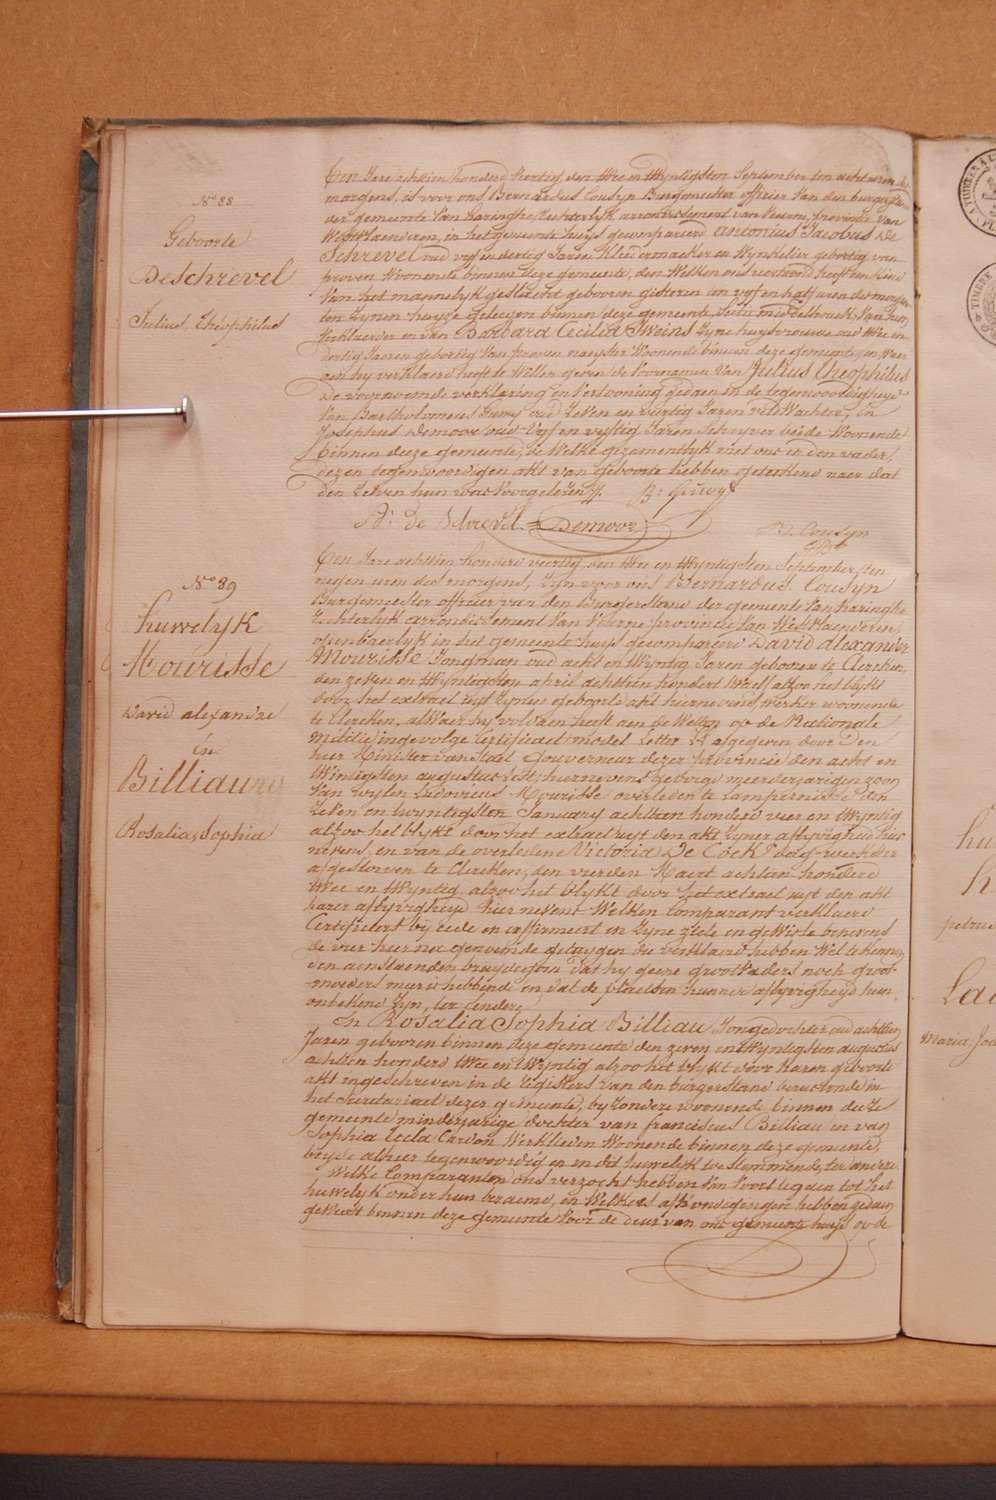 N° 88
Geboorte
DeSchrevel
Julius, Théophilus
Den Jare achttien honderd veertig den twee en twyntigsten September ten acht uren des
morgens, is voor ons Bernardus Cousyn Burgmeester officier van den burgerstand
der gemeente van haringhe, rechterlyk arrondissement van Veurne, provincie van
Westvlaenderen, in het gemeente huys gecompareerd antonius Jacobus De
Schrevel oud vyf en dertig Jaren Kleedermaeker en Wynkelier geboortig van
proven Woonende binnen deze gemeente, den Welken ons vertoond heeft een Kind
van het mannelyk geslacht gebooren gisteren ten vyf en half uren des morgens
ten zynen huyze gelegen binnen deze gemeente, van hem
Verklaerder en van Barbara Cecilia Sweins zyne huysvrouwe oud twee en
dertig Jaeren geboortig van proven naeyster Woonende binnen deze gemeente, en Waer
aen hy verklaerd heeft te Willen geven de Voornamen van Julius Theophilus
De voorzeyde verklaring en Vertooning gedaen in de tegenwoordigheyd
van Bartholomeus Guwy oud Zeven en veertig Jaren veld Wachter, en
Josephus Demoor oud Vyf en vyftig Jaren Schryver beide Woonende
binnen deeze gemeente, de Welke gezamentlyk met ons en den vader,
dezen tegenwoordigen akt van geboorte hebben geteekend naer dat
den zelven hun was Voorgelezen.
A: De Schrevel Demoor
B: Cousyn
N° 89
huwelyk
Mourisse
David alexandre
en
Billiauw
Rosalia, Sophia
Den Jare achttien honderd veertig, den twee en twyntigsten September, ten
negen uren des morgens, zyn voor ons Bernardus Cousyn
Burgemeester officier van den Burgerstand der gemeente van haringhe
rechterlyk arrondissement van Veurne provincie van Westvlaenderen,
openbaerlyk in het gemeente huys gecompareerd David alexander
Mourisse Jongman oud acht en twyntig Jaren gebooren te Clercken,
den zeven en twyntigsten april achttien honderd twaelf alzoo het blykt
door het extract uyt zynen geboorte akt hiernevens, werker woonende
te Clercken, alwaer hy voldaen heeft aen de Wetten op de Nationale
Militie ingevolge Certificaet model Letter afgegeven door Den
heer Minister van Staet Gouverneur dezer provincie den acht en
twintigsten augustus hiernevens meerderjarigen zoon
van wylen Ludovicus Mourisse overleden te Lampernisse den
zeven en twyntigsten January achttien honderd vier en twyntig
alzoo het blykt door het extract uyt den akt zyner aflyvigheyd hier
nevens, en van de overledene Victoria De Cock dag-werkster
afgestorven te Clercken, den vierden Maert achttien honderd
twee en twyntig alzoo het blykt door het extract uyt den akt
harer aflyvigheyd hier nevens Welken Comparant verklaerd
Certifieert by eede en affirmeert in zyne ziele en gewisse benevens
de vier hier na genoemde getuygen die verklaerd hebben wel te kennen
den aenstaenden bruydegom dat hy geene grootvaders noch groot-
moeders meer is hebbende en dat de plaetsen hunner aflyvigheyd hun
onbekend zyn, ter eender;
En Rosalia Sophia Billiau Jongedochter oud achttien
Jaren gebooren binnen deze gemeente den zeven en twyntigsten augustus
achttien honderd twee en twyntig alzoo het blykt door haren geboorte
akt ingeschreven in de registers van den burgerstand berustende in
het secretariaet dezer gemeente, byzondere woonende binnen deeze
gemeente minderjarige dochter van franciscus Billiau en van
Sophia Tecla Cardon Werklieden Woonende binnen deze gemeente,
beyde alhier tegenwoordig en in dit huwelyk toestemmende, ter andere.
Welke Comparanten ons verzocht hebben van voort te gaen tot het
huwelyk onder hun beraemd, en Welkers afkondigingen hebben gedaen
geweest binnen deze gemeente voor de deur van ons gemeente huys op de
hu
petrus
La
Maria, Jo